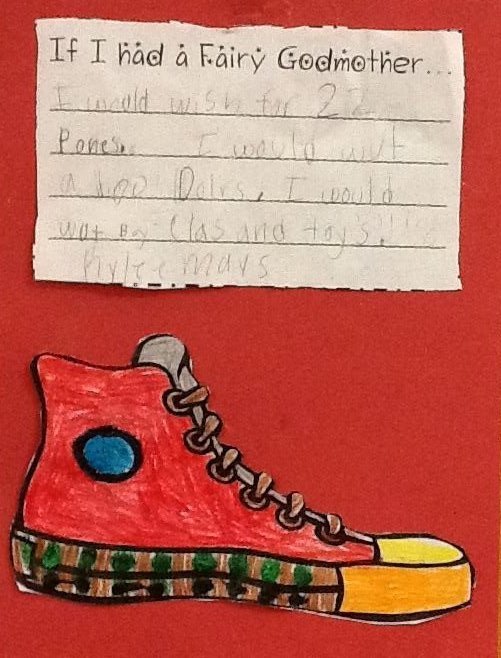 If I had a Fairy Godmother...
I would wish for 22
Pones. I would wut
a 100 Dolrs. I would
wut by Clas and toys!!!!
Rylee Mays